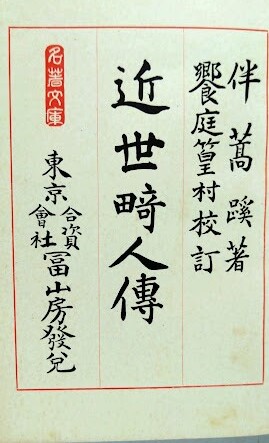 伴蒿蹊著
饗庭篁村校訂
近世畸人傳
名著文庫
東京合資會社冨山房發兌